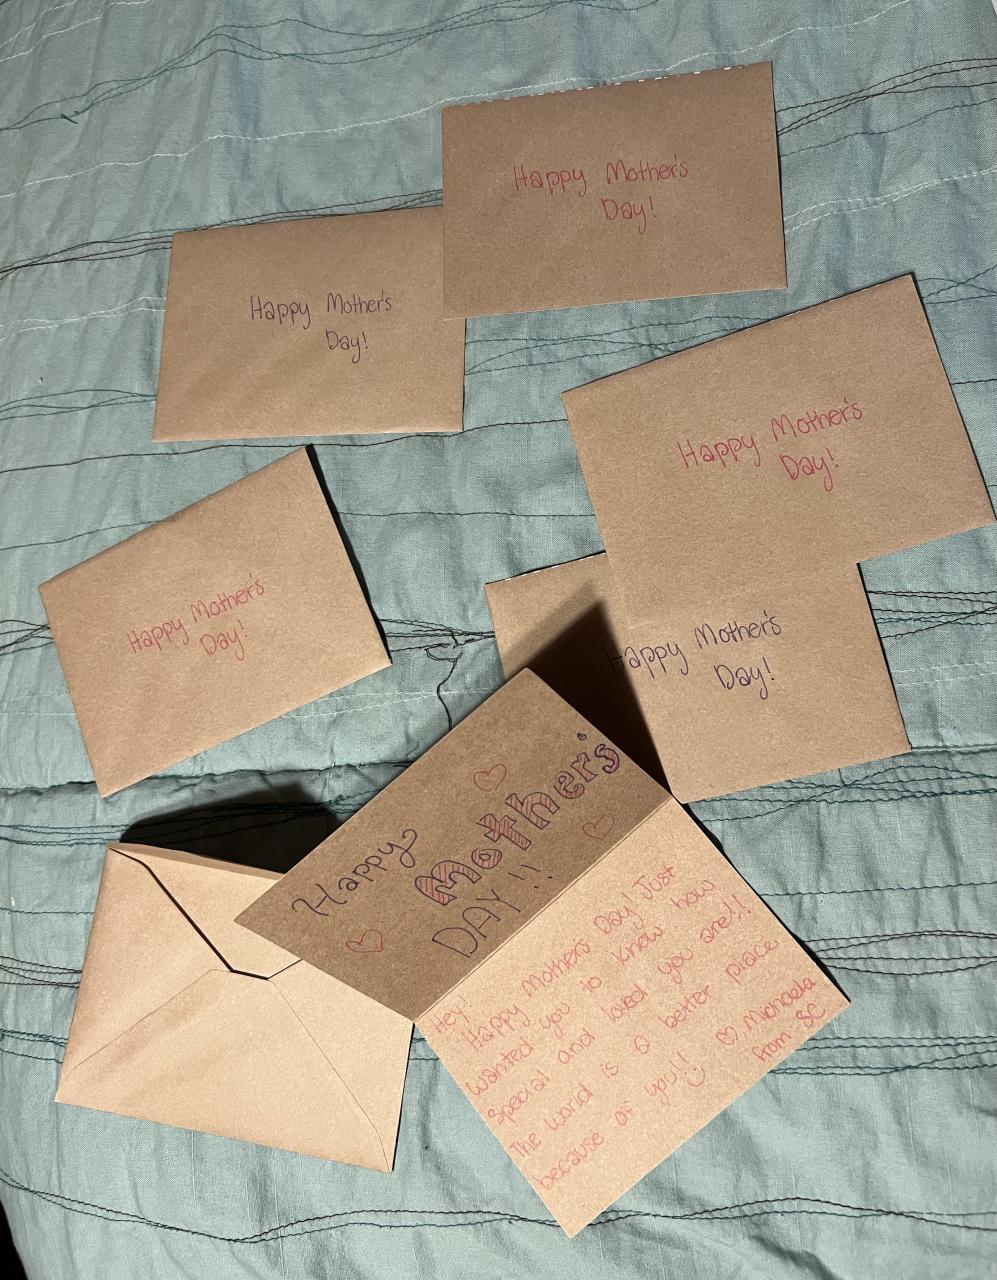 Happy Mother's
Day!
Happy Mother's
Day!
Happy Mother's
Day!
Happy Mother's
Day!
Happy Mother's
Day!
Happy
Mother's
DAY!!
Hey!
Happy Mother's Day! Just
wanted you to know how
special and loved you are!!
The world is a better place
because of you!! ☺
♡ Michaela
from SC